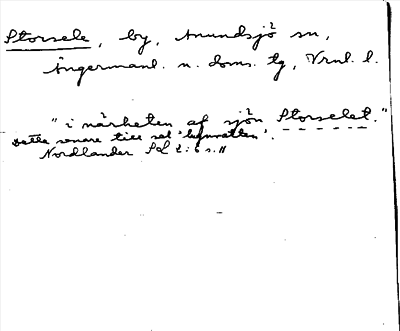 Storsele, by, Anundsjö sn,
Ångermanl. n. doms. tg, Vrnl. l.
"i närheten af sjön Storselet."
Detta senare till sel 'lugnvatten'.
Nordlander SoL 2:6 s. 11